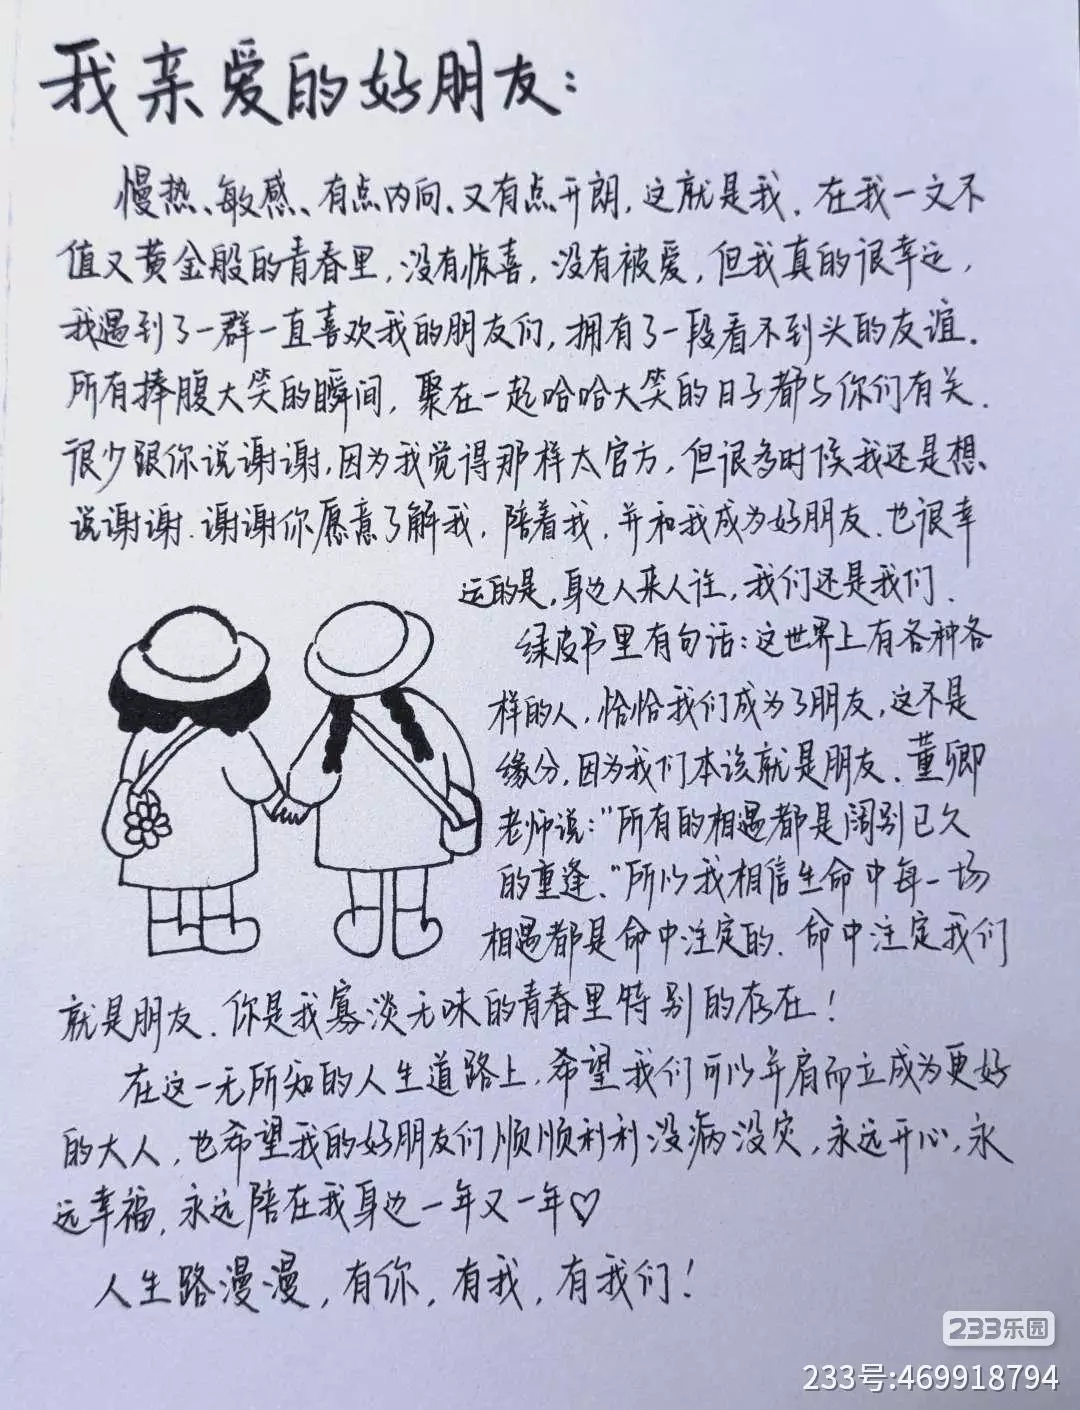 我亲爱的好朋友：
慢热、敏感、有点内向、又有点开朗，这就是我．在我一文不
值又黄金般的青春里，没有惊喜，没有被爱，但我真的很幸运，
我遇到了一群一直喜欢我的朋友们，拥有了一段看不到头的友谊．
所有捧腹大笑的瞬间，聚在一起哈哈大笑的日子都与你们有关．
很少跟你说谢谢，因为我觉得那样太官方，但很多时候我还是想
说谢谢．谢谢你愿意了解我，陪着我，并和我成为好朋友．也很幸
运的是，身边人来人往，我们还是我们．
绿皮书里有句话：这世界上有各种各
样的人，恰恰我们成为了朋友，这不是
缘分，因为我们本该就是朋友．董卿
老师说：“所有的相遇都是阔别已久
的重逢．”所以我相信生命中每一场
相遇都是命中注定的．命中注定我们
就是朋友．你是我寡淡无味的青春里特别的存在！
在这一无所知的人生道路上，希望我们可以并肩而立成为更好
的大人，也希望我的好朋友们顺顺利利没病没灾，永远开心，永
远幸福，永远陪在我身边一年又一年♡
人生路漫漫，有你，有我，有我们！
233乐园
233号:469918794